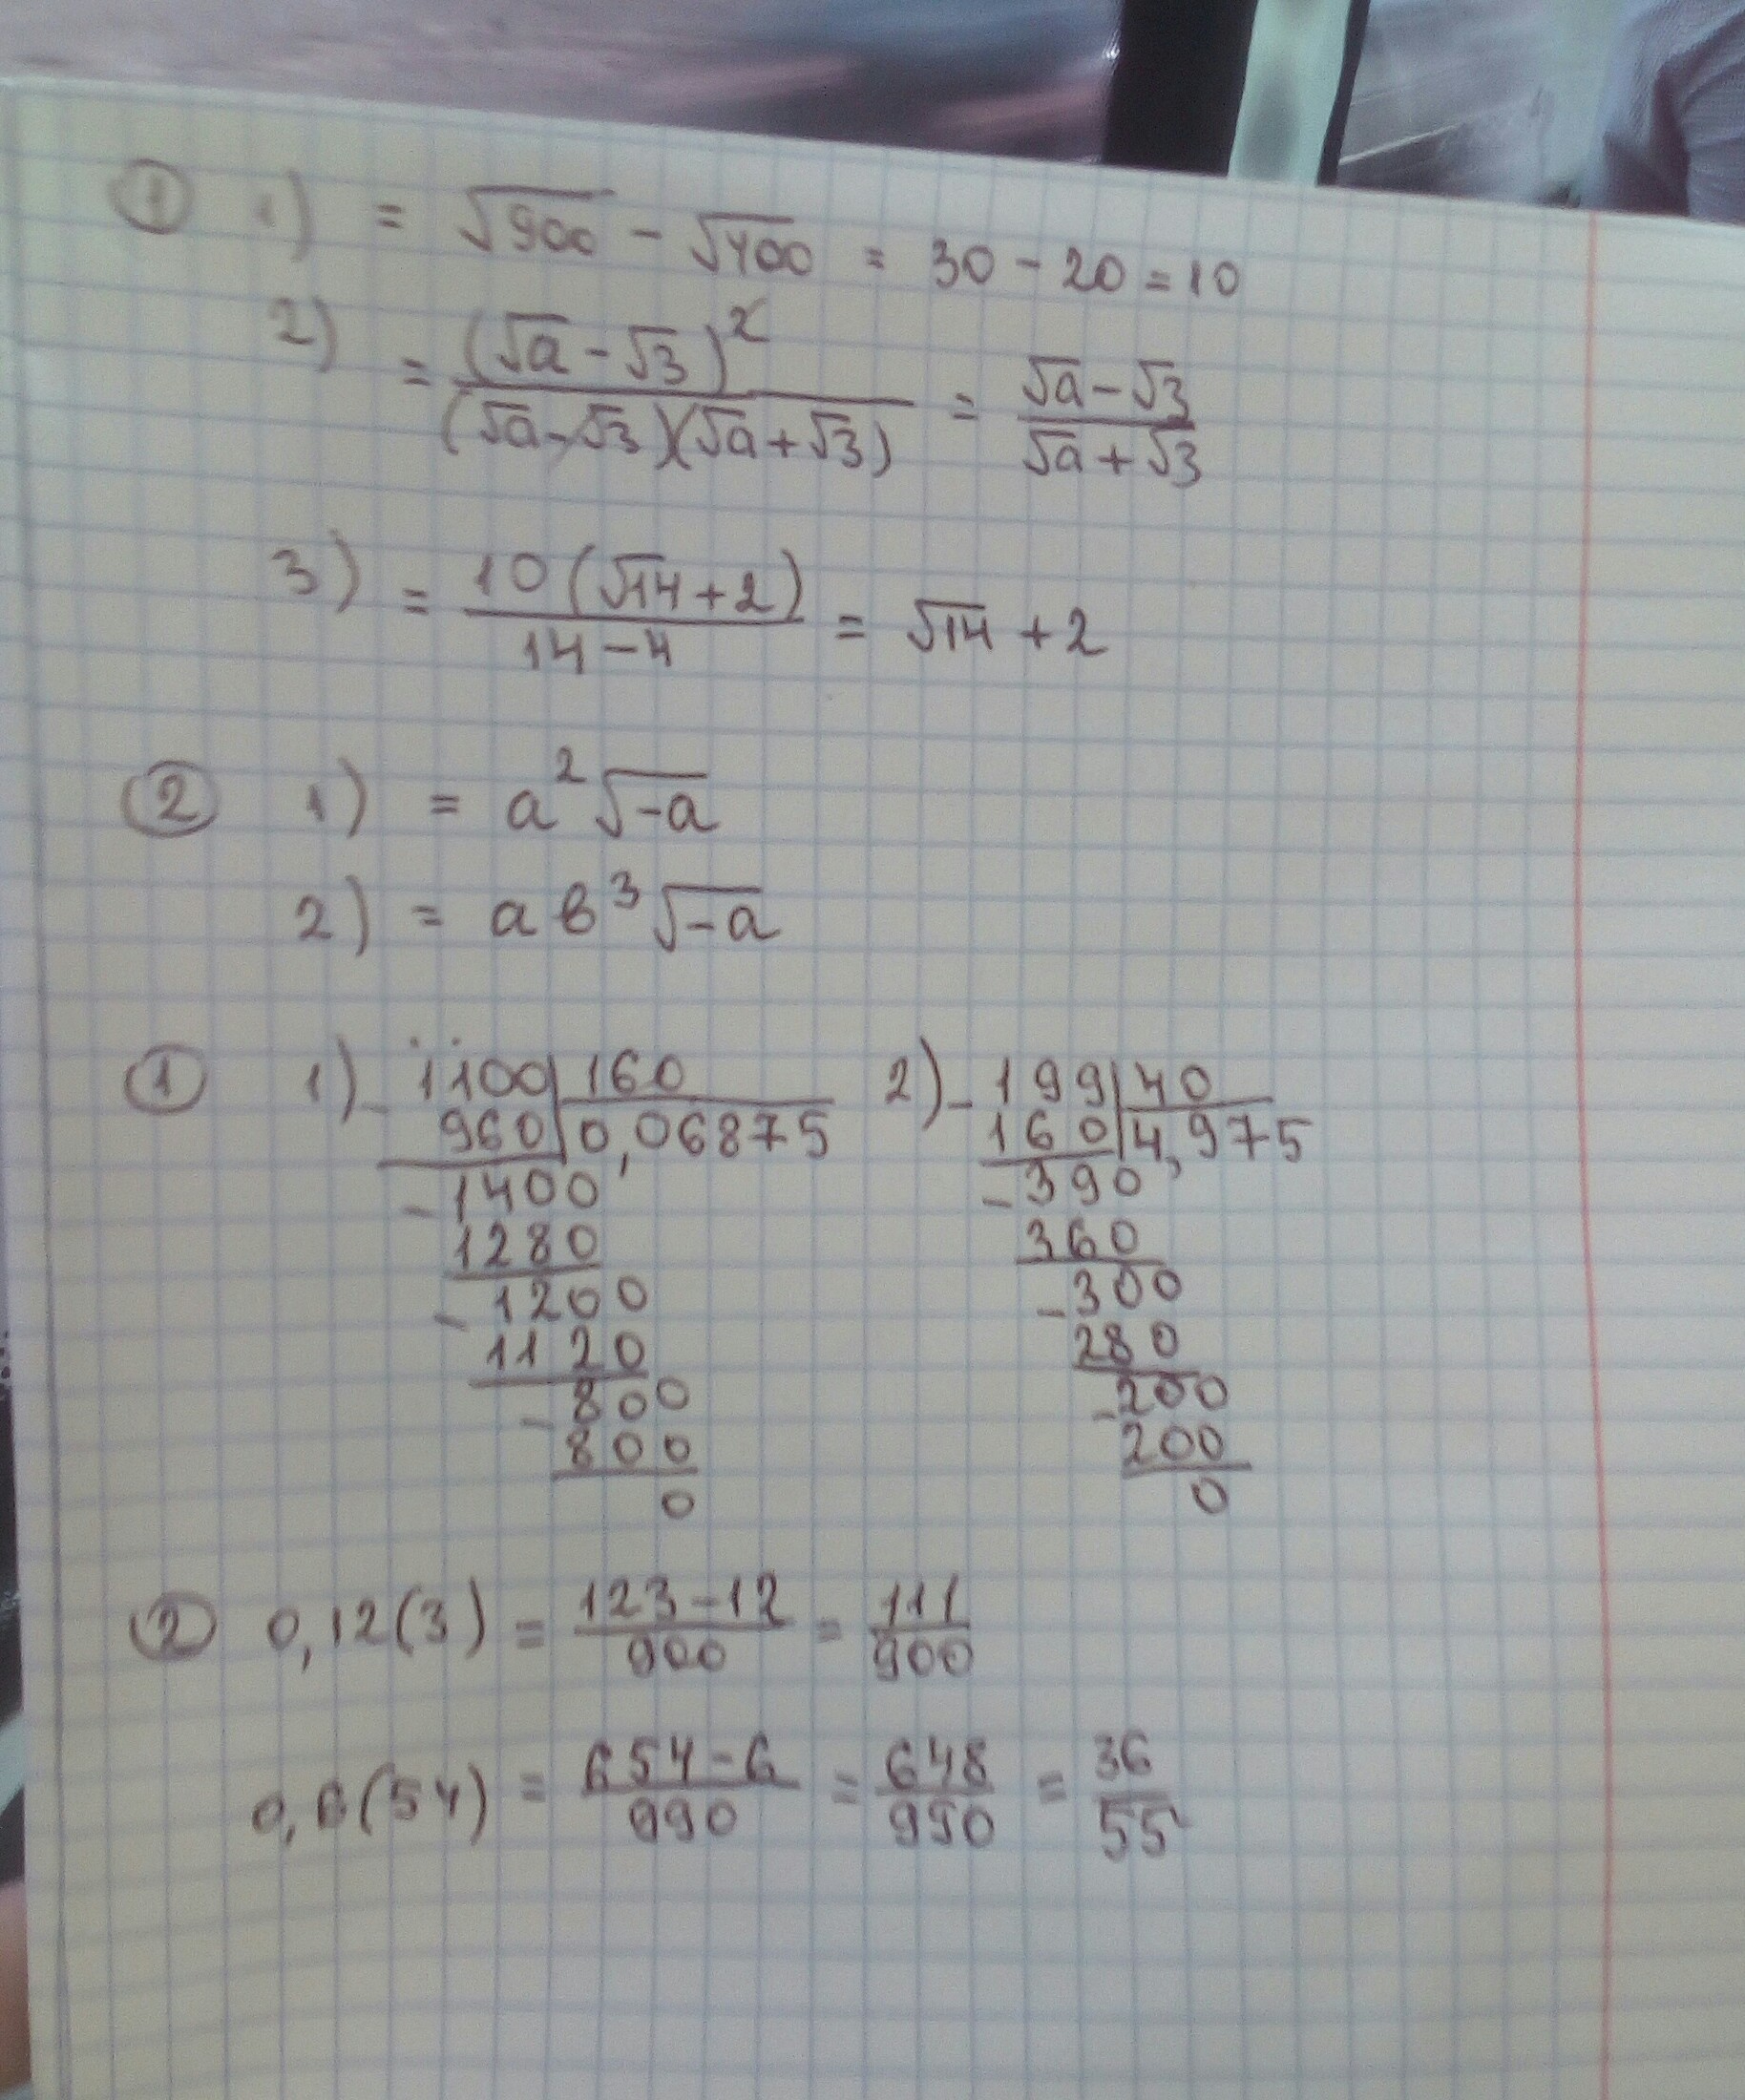 ① 1) = √900 - √400 = 30 - 20 = 10
2) = (√a - √3)² / (√a - √3)(√a + √3) = √a - √3 / √a + √3
3) = 10(√14 + 2) / 14 - 4 = √14 + 2
② 1) = a²√-a
2) = aв³√-a
① 1) - 1100 | 160
960 | 0,06875
- 1400
1280
- 1200
1120
- 800
800
0
2) - 199 | 40
160 | 4,975
- 390
360
- 300
280
- 200
200
0
② 0,12(3) = 123 - 12 / 900 = 111 / 900
0,6(54) = 654 - 6 / 990 = 648 / 990 = 36 / 55